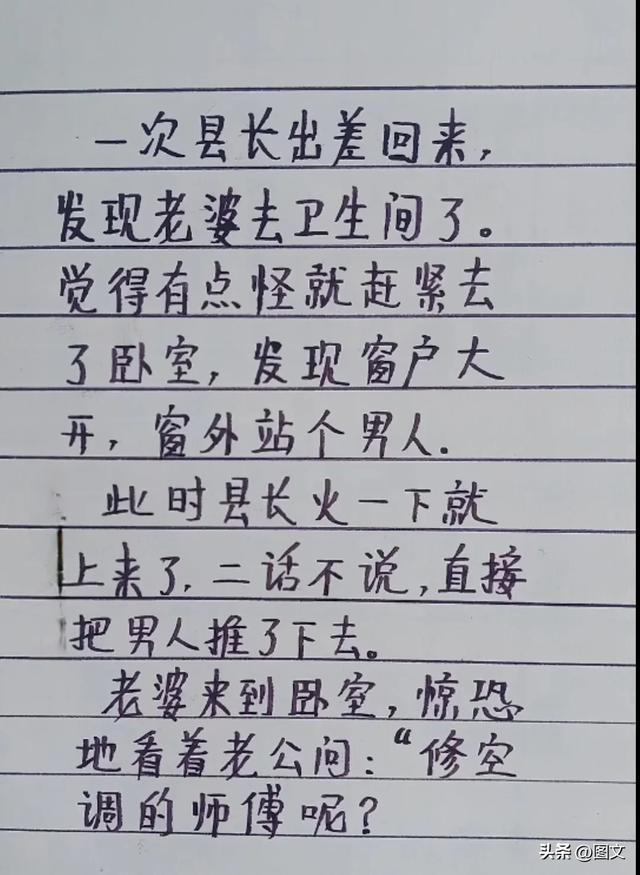 一次县长出差回来，
发现老婆去卫生间了。
觉得有点怪就赶紧去
了卧室，发现窗户大
开，窗外站个男人.
此时县长火一下就
上来了，二话不说，直接
把男人推了下去。
老婆来到卧室，惊恐
地看着老公问：“修空
调的师傅呢？
头条 @图文